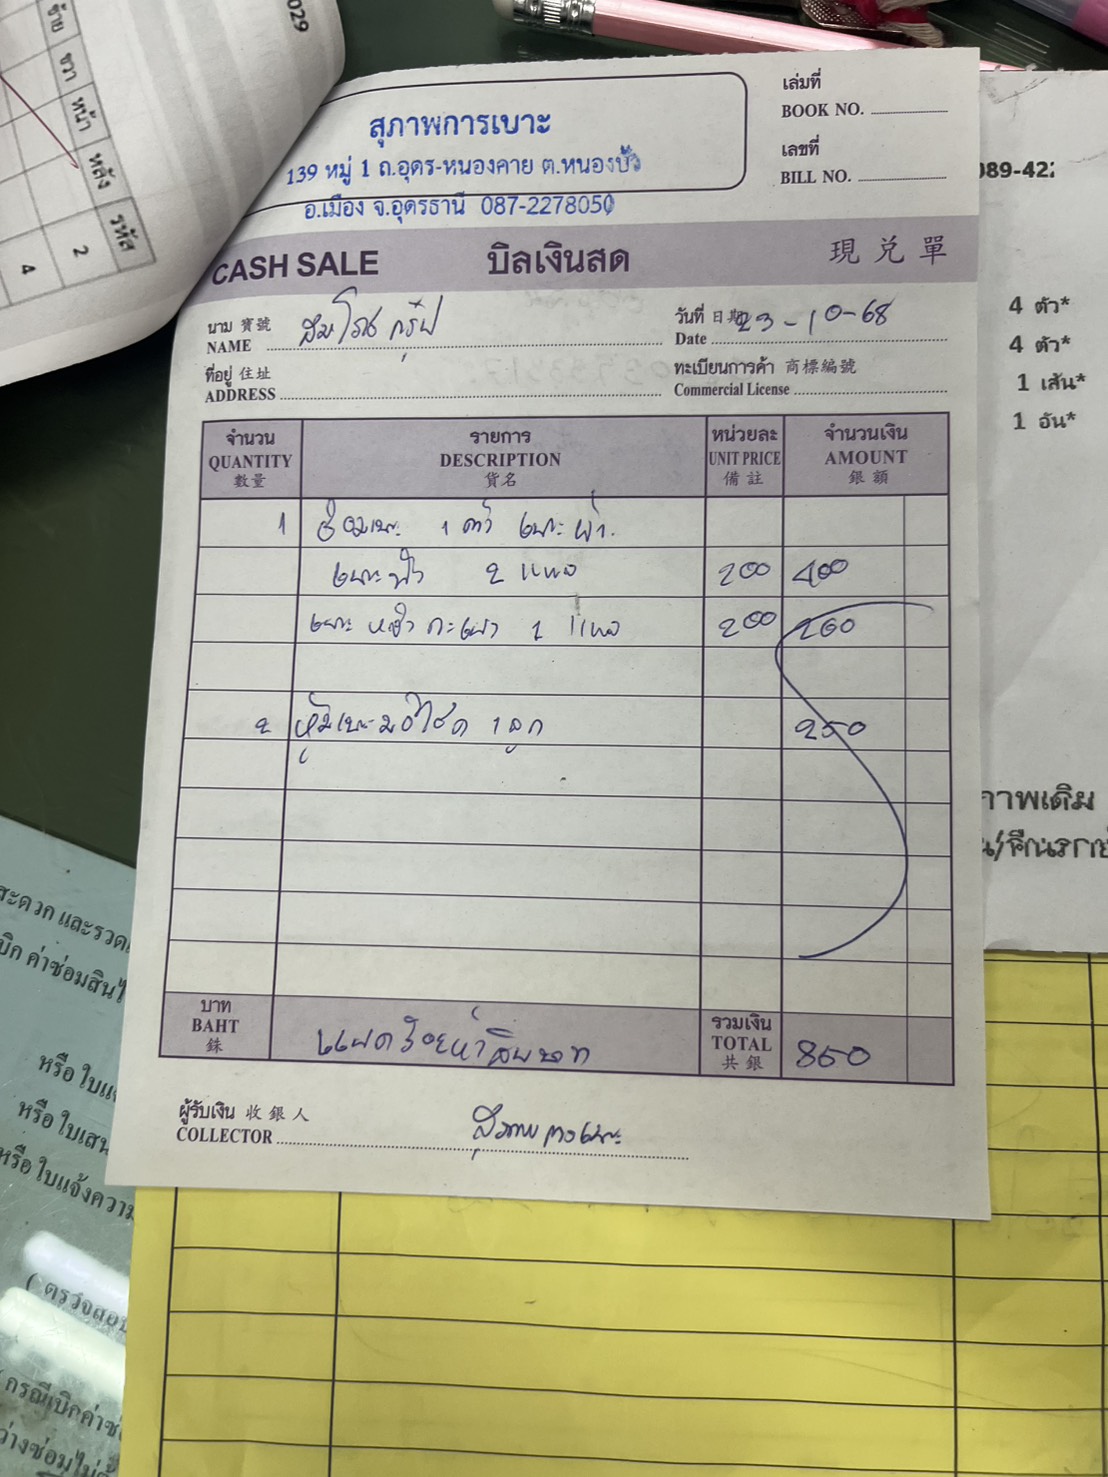 029
ซ้าย ขวา หน้า หลัง รหัส
2
4
สุภาพการเบาะ
139 หมู่ 1 ถ.อุดร-หนองคาย ต.หนองบัว
อ.เมือง จ.อุดรธานี 087-2278050
เล่มที่
BOOK NO.
เลขที่
BILL NO.
089-422
CASH SALE บิลเงินสด 現兌單
นาม 寶號
NAME
กรุ๊ป
วันที่ 日期 23-10-68
Date
ที่อยู่ 住址
ADDRESS
ทะเบียนการค้า 商標編號
Commercial License
4 ตัว*
4 ตัว*
1 เส้น*
1 อัน*
จำนวน รายการ หน่วยละ จำนวนเงิน
QUANTITY DESCRIPTION UNIT PRICE AMOUNT
數量 貨名 備註 銀額
1 ซ่อมเบาะ 1 ตัว เบาะผ้า.
เบาะ 2 แผง 200 400
เบาะ 1 แผง 200 200
2 หุ้มเบาะมอไซด 1 ลูก 250
าพเดิม
บาท
BAHT
銖
แปดร้อยห้าสิบบาท
รวมเงิน
TOTAL
共銀
850
ผู้รับเงิน 收銀人
COLLECTOR
สุภาพการเบาะ
สะดวก และรวด
บิก ค่าซ่อมสินไ
หรือ ใบแ
หรือ ใบเสน
หรือ ใบแจ้งความ
( ตรวจสอบ
กรณีเบิกค่าซ่
ว่างซ่อมไม่